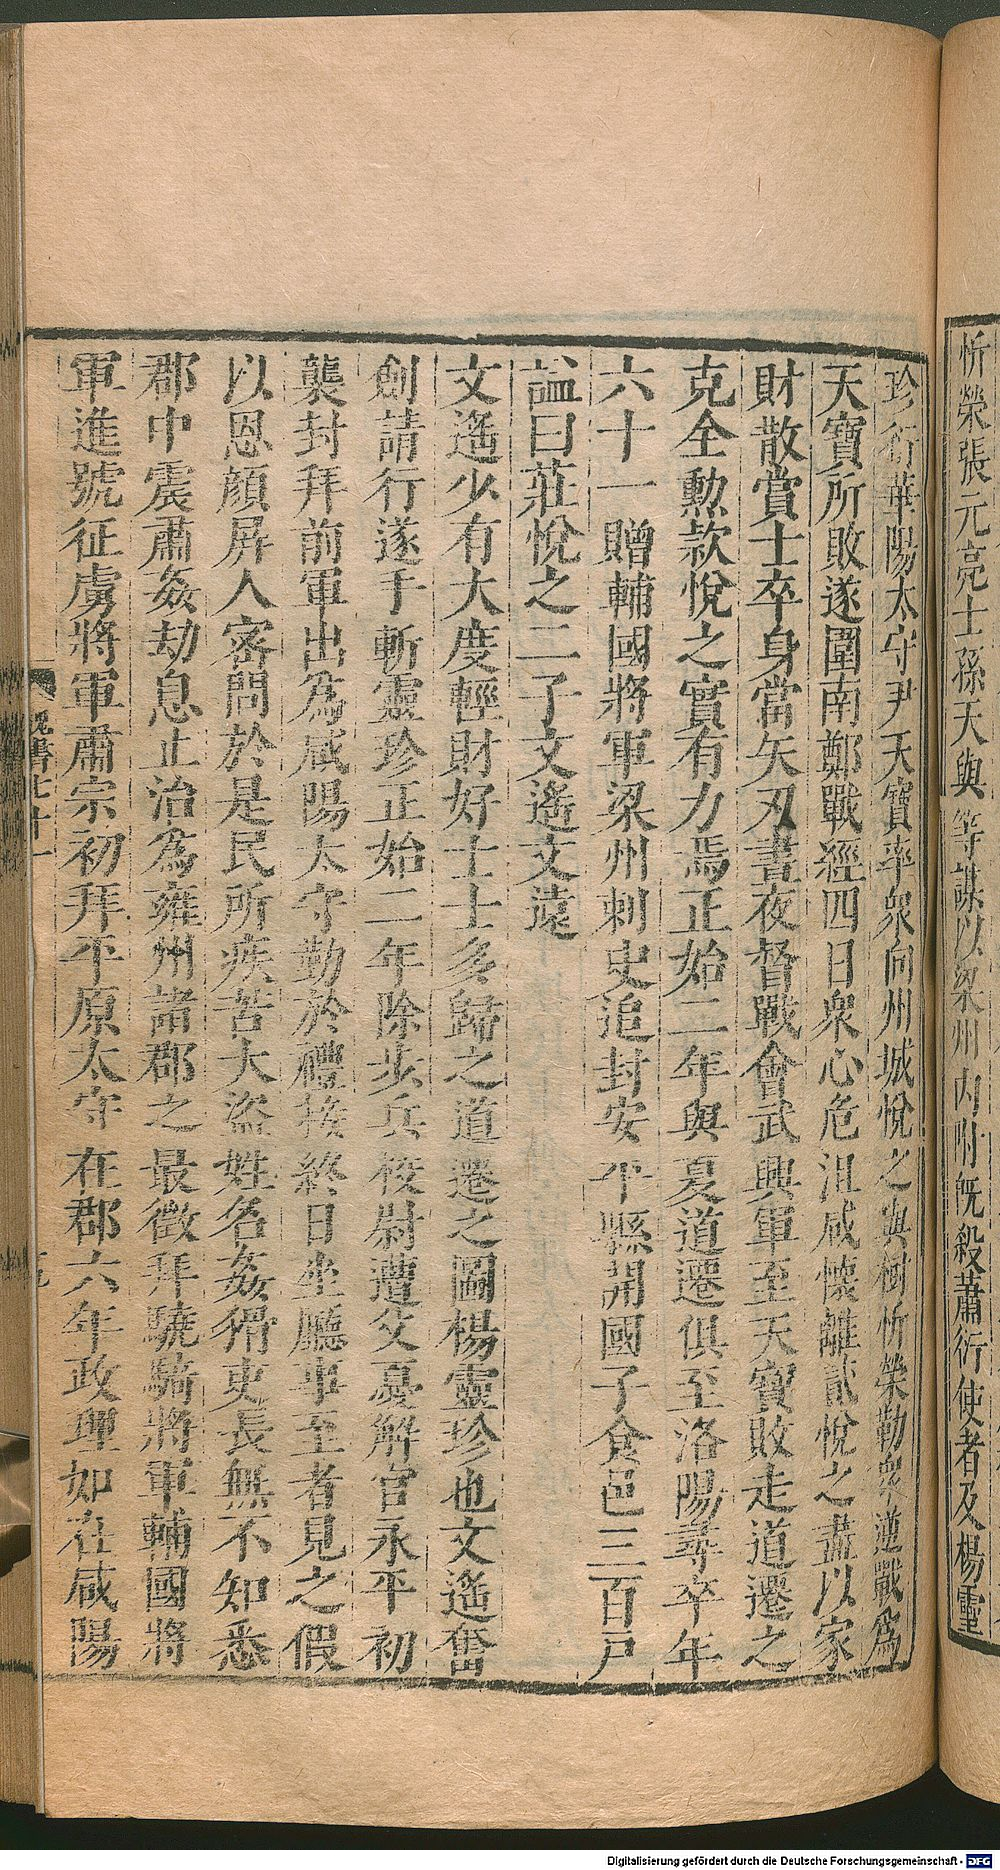 忻榮張元亮士孫天與等謀以梁州內附旣殺蕭衍使者及楊靈
珍衍華陽太守尹天寶率衆向州城悅之與樹忻榮勒衆逆戰爲
天寶所敗遂圍南鄭戰經四日衆心危沮咸懷離貳悅之盡以家
財散賞士卒身當矢刃晝夜督戰會武興軍至天寶敗走道遷之
克全勲款悅之實有力焉正始二年與夏道遷俱至洛陽尋卒年
六十一贈輔國將軍梁州刺史追封安平縣開國子食邑三百戶
謚曰莊悅之二子文遙文遠
文遙少有大度輕財好士士多歸之道遷之圖楊靈珍也文遙奮
劍請行遂手斬靈珍正始二年除步兵校尉遭父憂解官永平初
襲封拜前軍出爲咸陽太守勤於禮接終日坐廳事至者見之假
以恩顏屏人密問於是民所疾苦大盜姓名姦猾吏長無不知悉
郡中震肅姦劫息止治爲雍州諸郡之最徵拜驍騎將軍輔國將
軍進號征虜將軍肅宗初拜平原太守在郡六年政理如在咸陽
魏書七十一
Digitalisierung gefördert durch die Deutsche Forschungsgemeinschaft - DFG